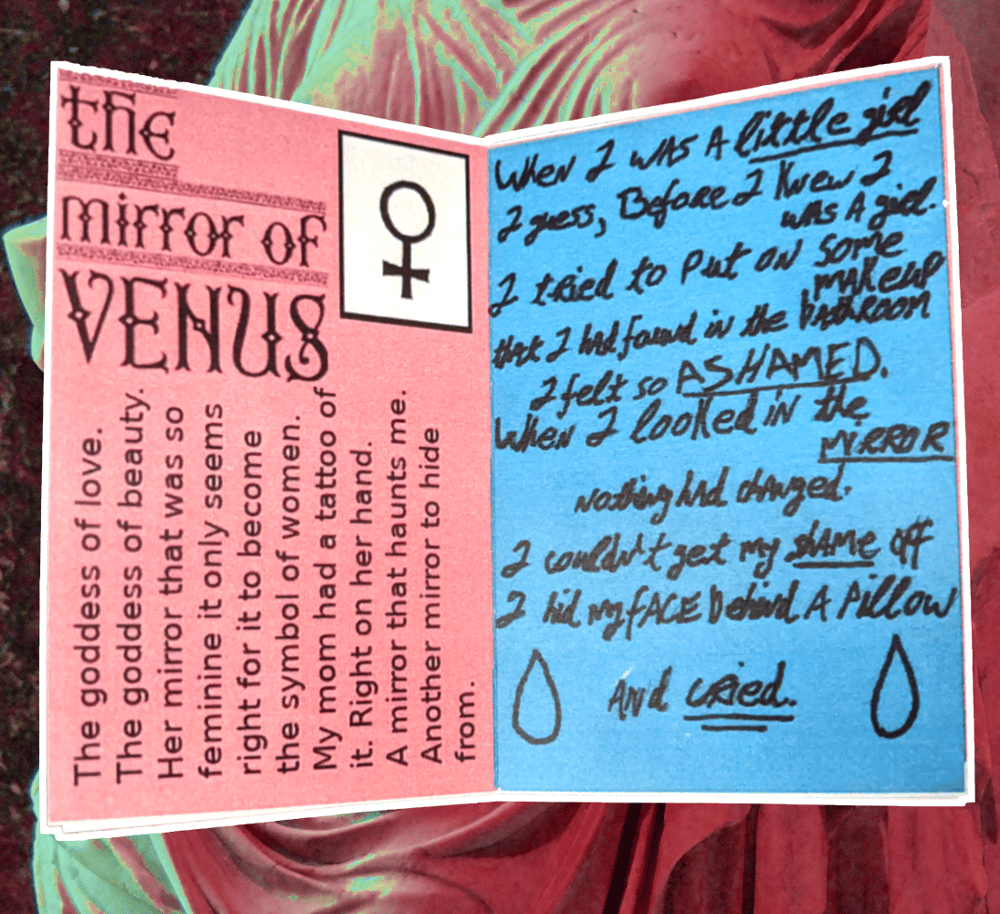 the
mirror of
VENUS
The goddess of love.
The goddess of beauty.
Her mirror that was so
feminine it only seems
right for it to become
the symbol of women.
My mom had a tattoo of
it. Right on her hand.
A mirror that haunts me.
Another mirror to hide
from.
When I was A little girl
I guess, Before I Knew I
was A girl.
I tried to Put on some
makeup
that I had found in the bathroom
I felt so ASHAMED.
When I looked in the
MIRROR
nothing had changed.
I couldn't get my shame off
I hid my fACE behind A Pillow
And cried.